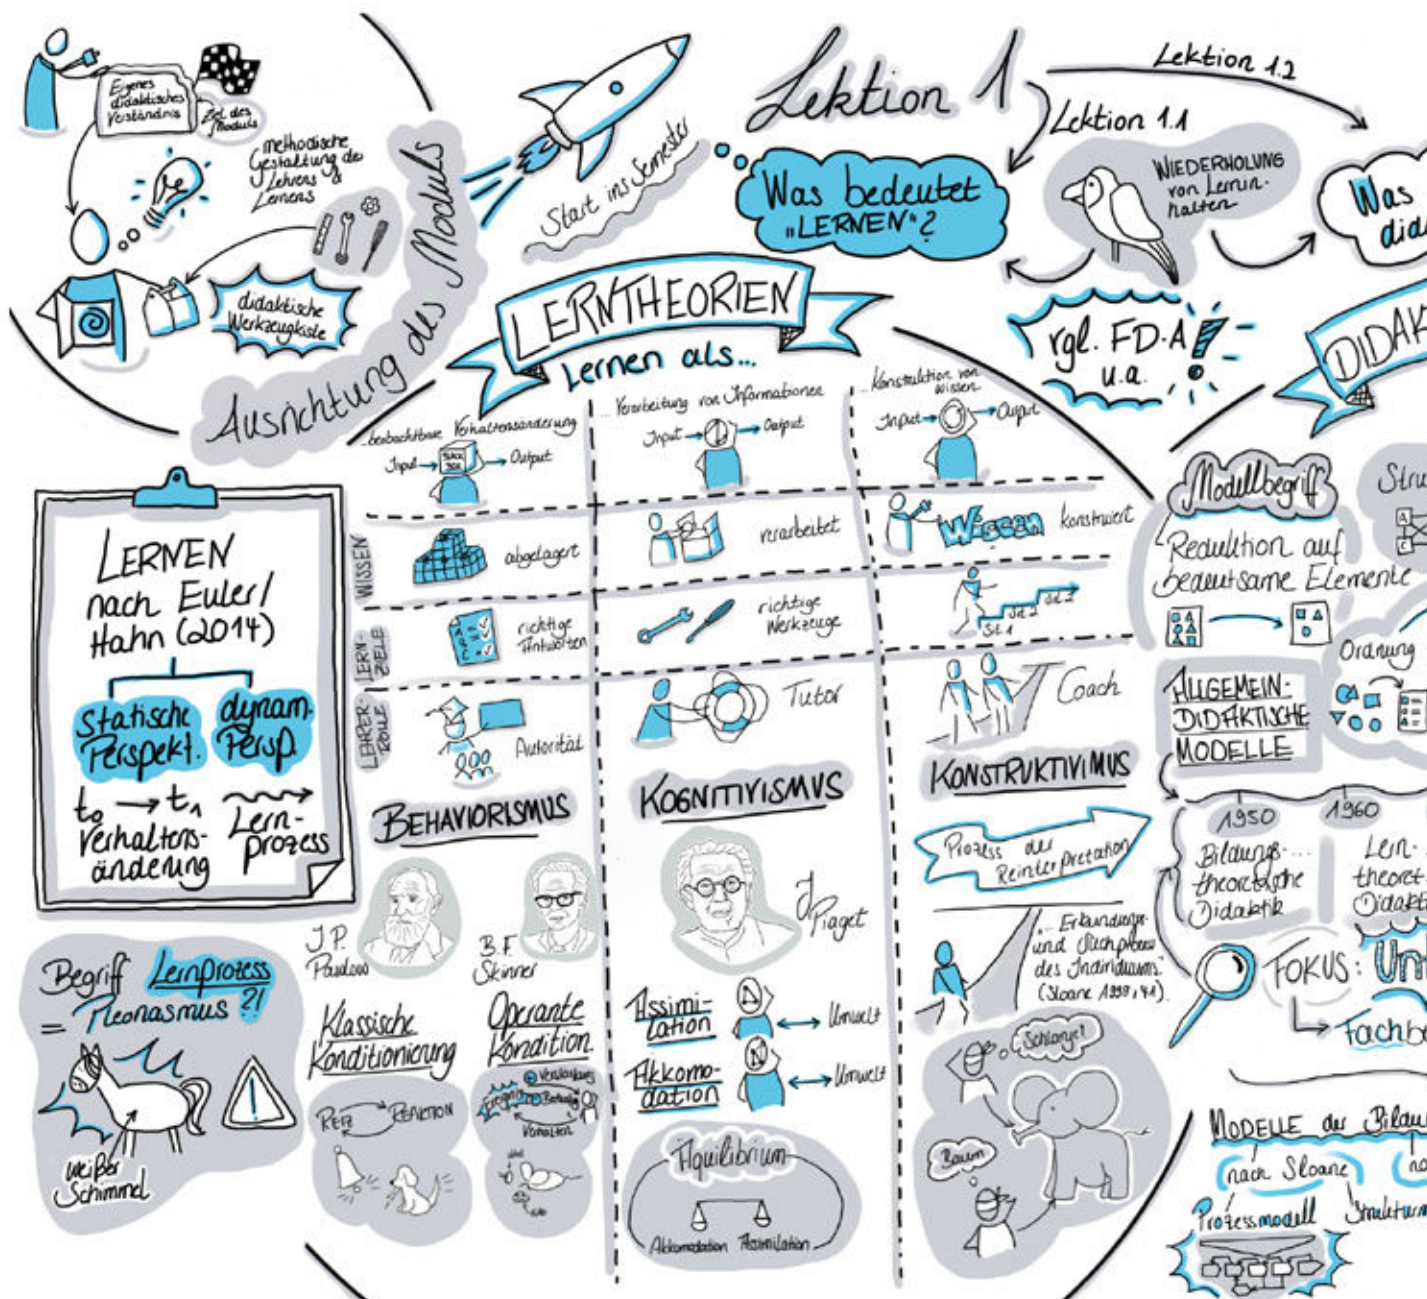 Eigenes
didaktisches
Verständnis
Ziel des
Moduls
methodische
Gestaltung des
Lehrens &
Lernens
didaktische
Werkzeugkiste
Ausrichtung des Moduls
Start ins Semester
Lektion 1
Lektion 1.2
Lektion 1.1
Was bedeutet
"LERNEN"?
WIEDERHOLUNG
von Lernin-
halten
Was
did
vgl. FD-A!
u.a.
LERNTHEORIEN
Lernen als...
...beobachtbare Verhaltensänderung
Input → BLACK BOX → Output
...Verarbeitung von Informationen
Input → Output
...Konstruktion von
Wissen
Input → Output
WISSEN
abgelagert
verarbeitet
Wissen konstruiert
LERN-
ZIELE
richtige
Antworten
richtige
Werkzeuge
Sit. 1
Sit. 2
Sit. 3
LEHRER-
ROLLE
Autorität
Tutor
Coach
BEHAVIORISMUS
KOGNITIVISMUS
KONSTRUKTIVIMUS
LERNEN
nach Euler/
Hahn (2014)
statische
Perspekt.
dynam.
Persp.
t₀ → t₁
Verhaltens-
änderung
Lern-
prozess
Begriff Lernprozess
= Pleonasmus ?!
weißer
Schimmel
J.P.
Pawlow
B.F.
Skinner
J. Piaget
Klassische
Konditionierung
REIZ
REAKTION
Operante
Kondition.
Ereignis
Verhalten
Assimi-
lation
Umwelt
Akkomo-
dation
Umwelt
Äquilibrium
Akkomodation Assimilation
Prozess der
Reinterpretation
"... Erkundungs-
und Suchprozess
des Individuums."
(Sloane 1999, 41).
Schlange!
Baum
DIDAK
Modellbegriff
Reduktion auf
bedeutsame Elemente
Stru
A
C
Ordnung
ALLGEMEIN-
DIDAKTISCHE
MODELLE
1950
1960
Bildungs-...
theoretische
Didaktik
Lern-
theoret.
Didakti
FOKUS: Unt
Fachbe
MODELLE der Bildu
nach Sloane
na
Prozessmodell
Strukturm